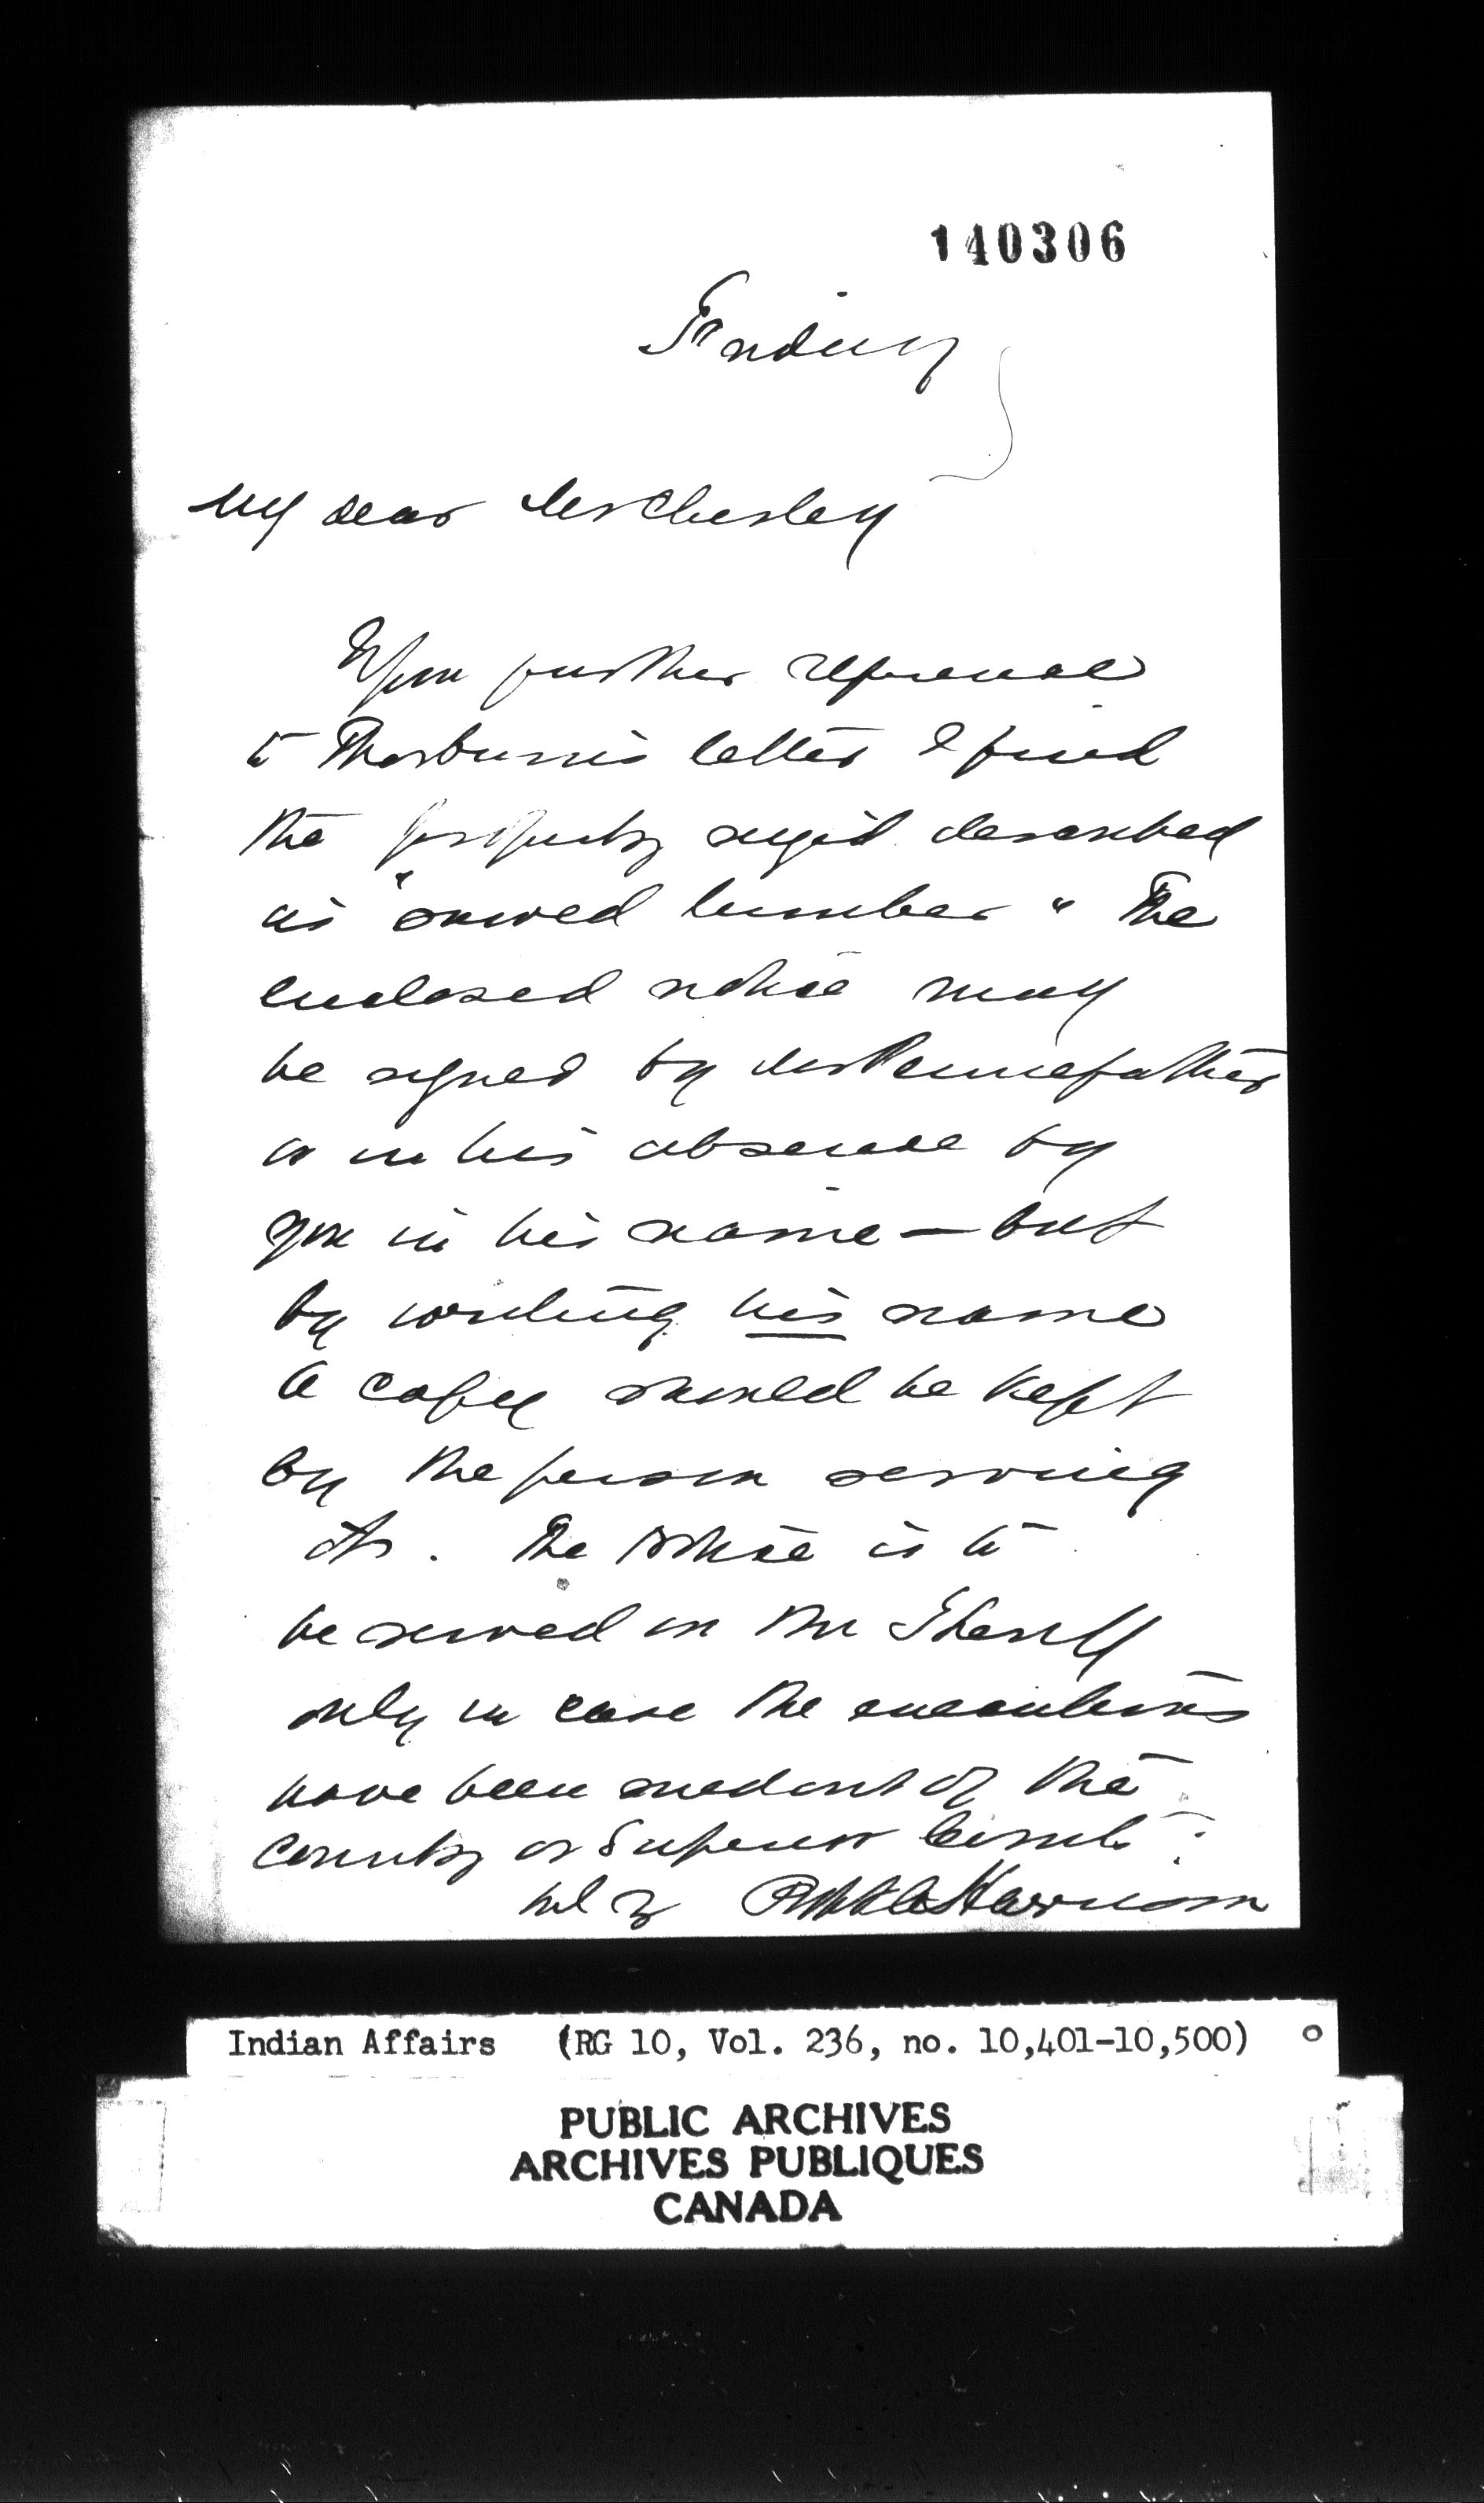 140306
My dear Mr Chesley
Upon further reference
to Thorburn's letter I find
the property seized described
as "sawed lumber" The
enclosed notice may
be signed by Mr Pennefather
or in his absence by
you in his name — but
by writing his name
A copy should be kept
by the person serving
it. The Notice is to
be served on the Sheriff
only in case the executions
have been out of the
County or Superior Courts.
Harrison
Indian Affairs (RG 10, Vol. 236, no. 10,401-10,500)
PUBLIC ARCHIVES
ARCHIVES PUBLIQUES
CANADA